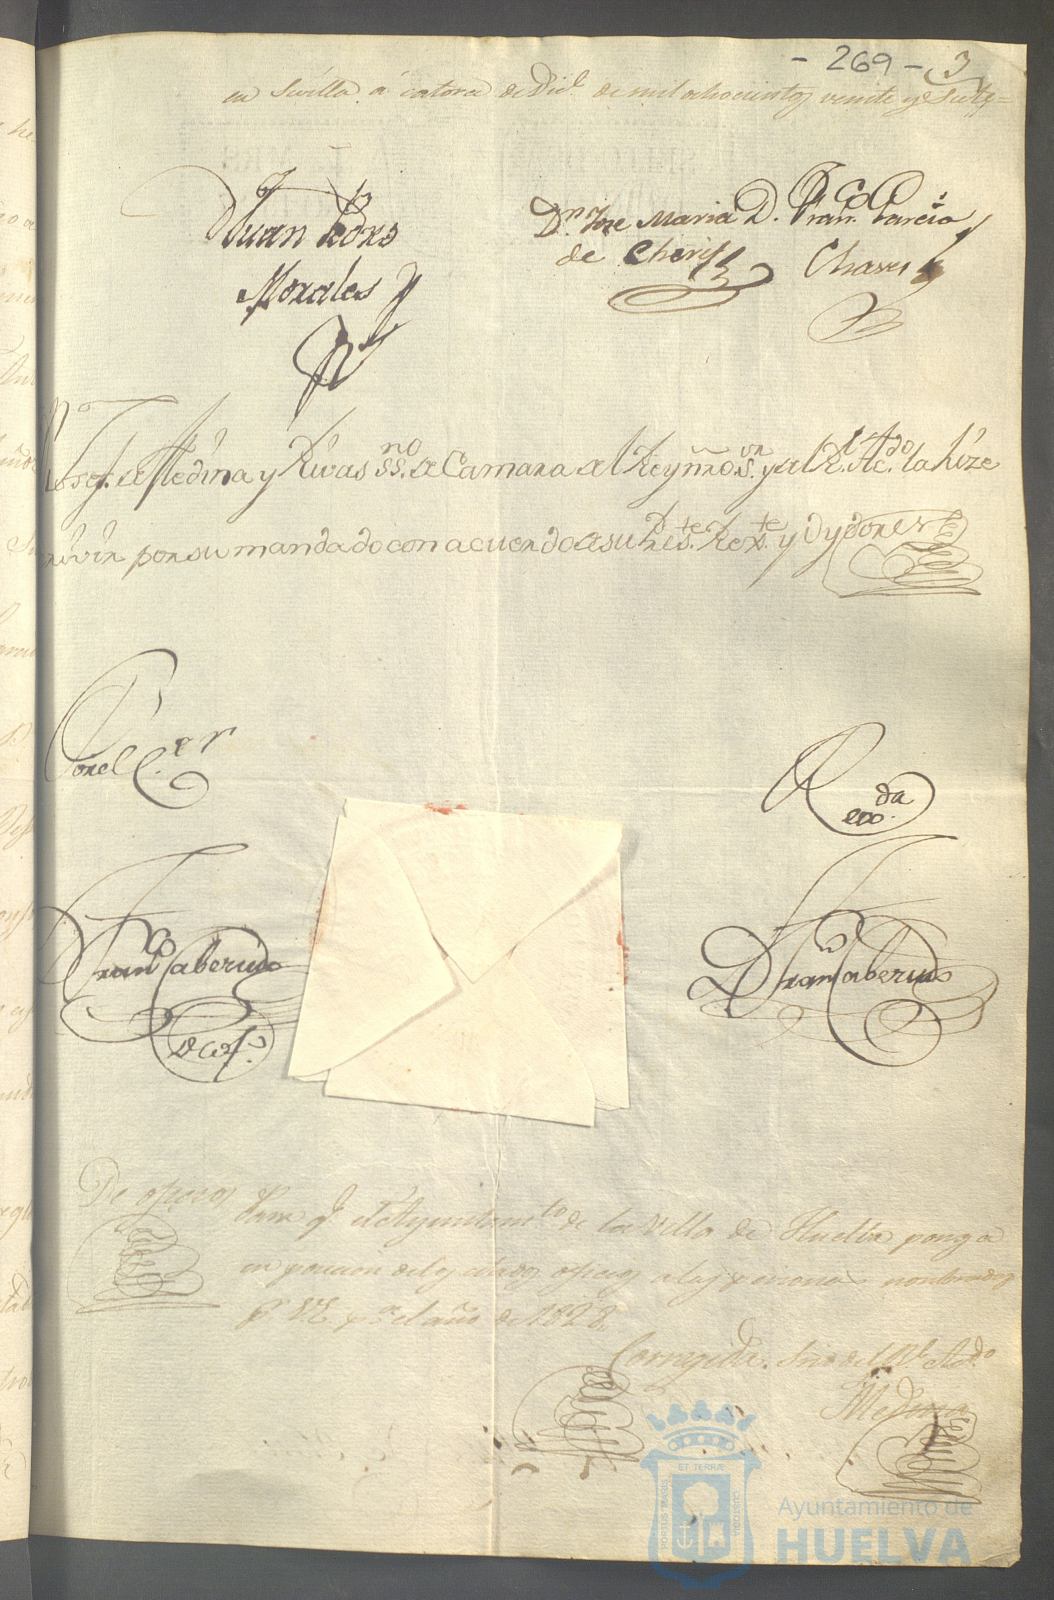 - 269 - 3
en Sevilla á catorce de Dicͤ. de mil ochocientos veinte y siete=
Juan Pedro
Morales y
Dn. Jose Maria
de Cheri
D. Franco. Garcia
Chaves
Josef. de Medina y Rivas ssno. de Camara del Rey nro. sor. y del Rl. Acdo. la hize
escrivir por su mandado con acuerdo de su Regte. y Oydores
Por el Cer
Rexda
Franco Taberne
Franco Taberne
De oficio
Para q. el Ayuntamto. de la Villa de Huelva ponga
en posesion de los oficios a las personas nombradas
pr. V.E. pa. el año de 1828.
Corregida. Srio del Rl. Acdo
Medina
PORTUS MARIS
ET TERRÆ
CUSTODIA
Ayuntamiento de
HUELVA